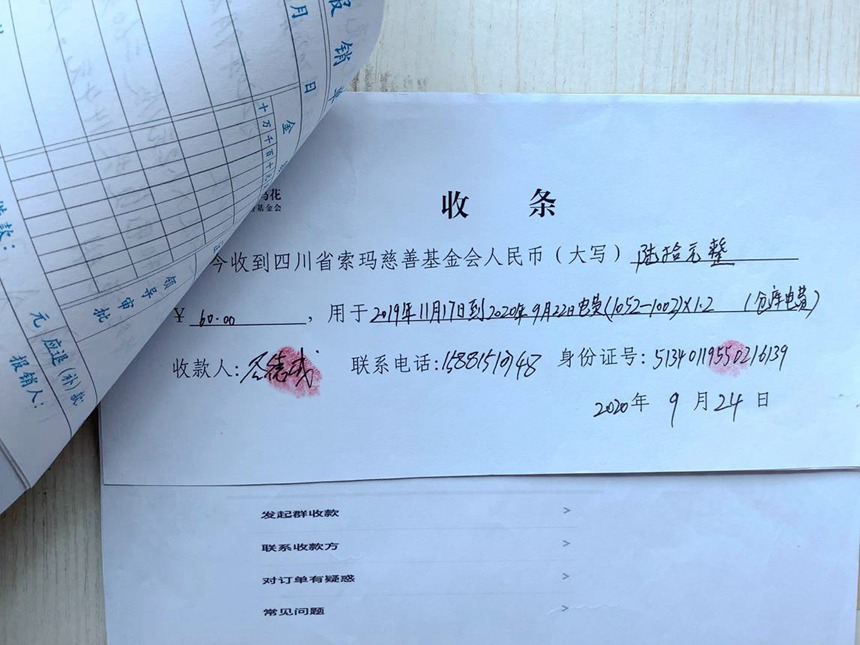 报销单
月 日
金
十万千百十元
领导审批
款：
元
应退（补）款
报销人：
花
基金会
收 条
今收到四川省索玛慈善基金会人民币（大写）陆拾元整
￥ 60.00 ，用于2019年11月17日到2020年9月22日电费(1052-1002)×1.2 （仓库电费）
收款人： 德 联系电话： 身份证号：
2020年 9 月 24 日
发起群收款 >
联系收款方 >
对订单有疑惑 >
常见问题 >